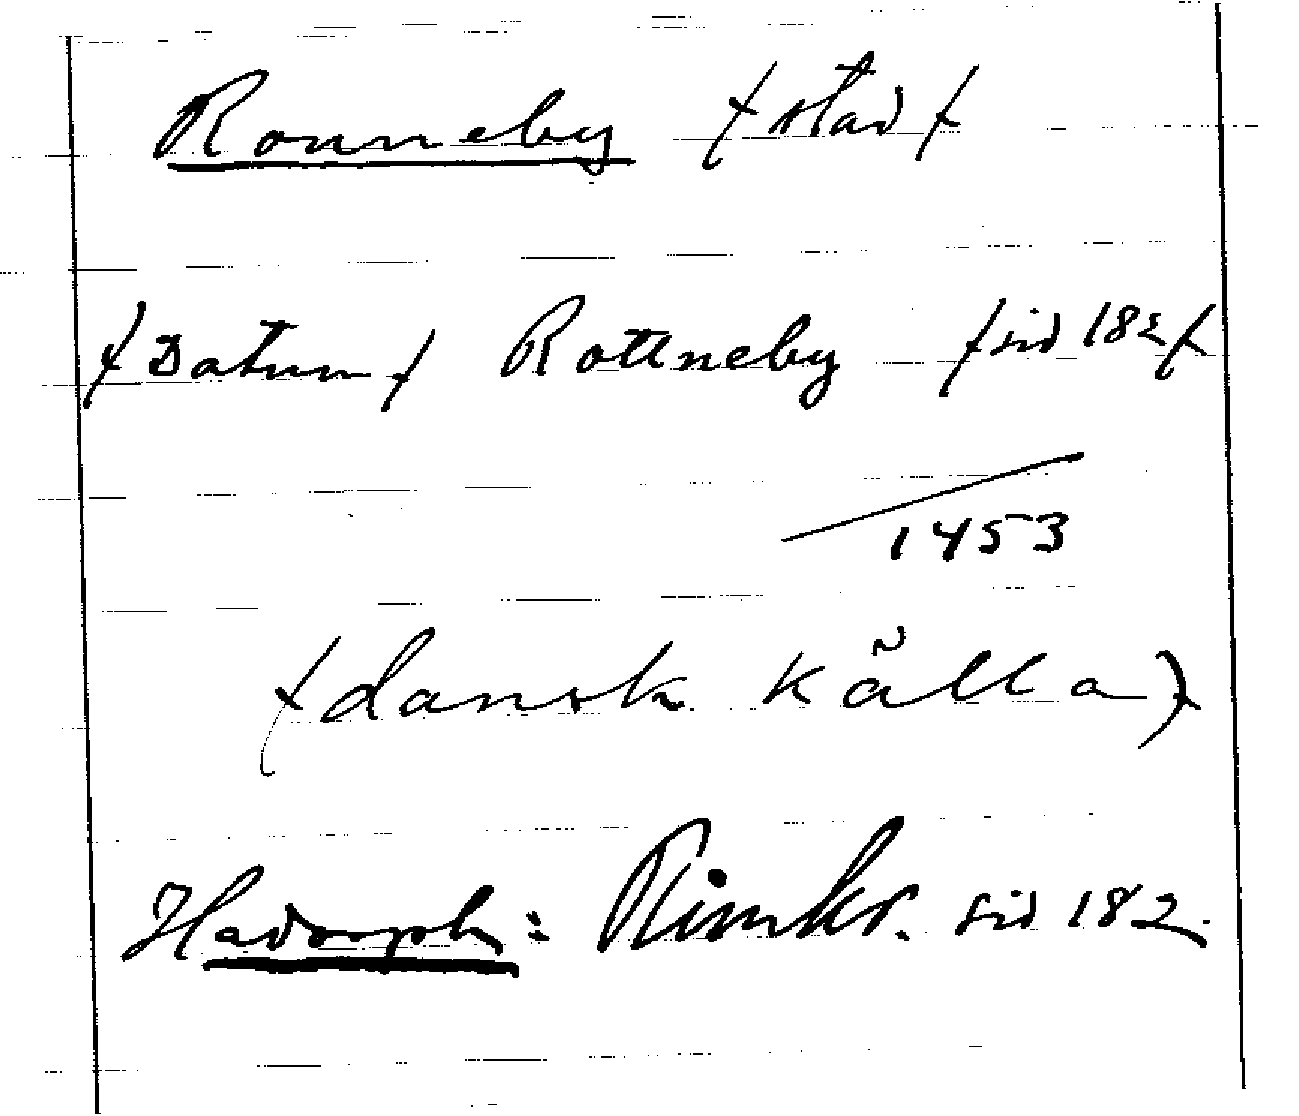 Ronneby (stad)
(Datum) Rottneby (sid 182)
1453
(dansk källa)
Hadorph: Rimkr. sid 182.